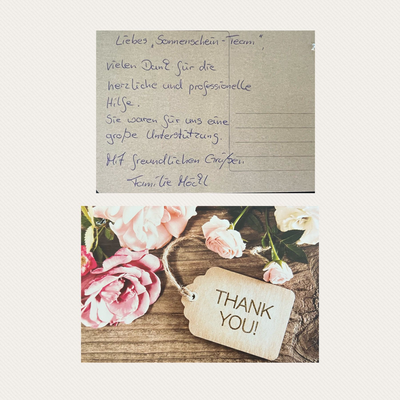 Liebes „Sonnenschein-Team",
vielen Dank für die
herzliche und professionelle
Hilfe.
Sie waren für uns eine
große Unterstützung.
Mit freundlichen Grüßen
Familie
THANK
YOU!